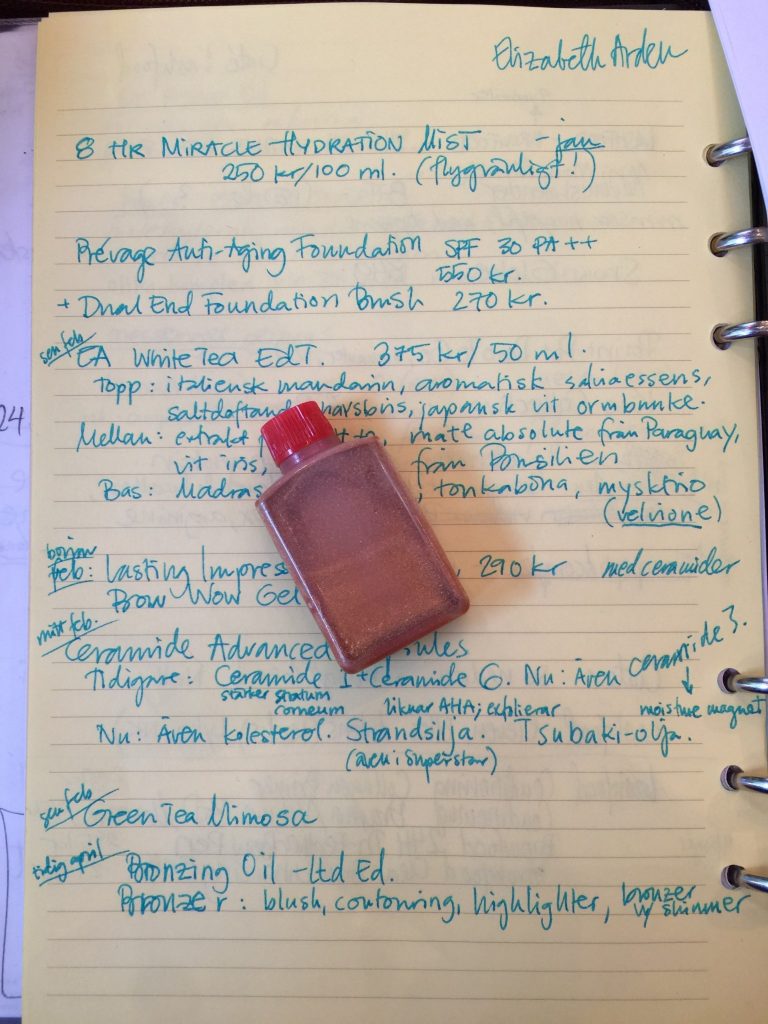 Elizabeth Arden
8 HR MIRACLE HYDRATION MIST - jan
250 kr/100 ml. (flygvänligt!)
Prevage Anti-Aging Foundation SPF 30 PA++
550 kr.
+ Dual End Foundation Brush 270 kr.
sen feb.
EA White Tea EdT. 375 kr/50 ml.
Topp: italiensk mandarin, aromatisk salviaessens,
saltdoftande havsbris, japansk vit ormbunke.
Mellan: extrakt mate absolute från Paraguay,
vit iris, från Brasilien
Bas: Madras , tonkaböna, myskino
(velvione)
början
feb: Lasting Impress , 290 kr med ceramider
Brow Wow Gel
mitt feb.
Ceramide Advanced sules
Tidigare: Ceramide 1 + Ceramide 6. Nu: Även ceramide 3.
stärker stratum corneum liknar AHA; exfolierar moisture magnet
Nu: Även kolesterol. Strandsilja. Tsubaki-olja.
(även i Superstar)
sen feb.
Green Tea Mimosa
tidig april
Bronzing Oil - Ltd Ed.
Bronzer: blush, contouring, highlighter, bronzer w/ shimmer
24